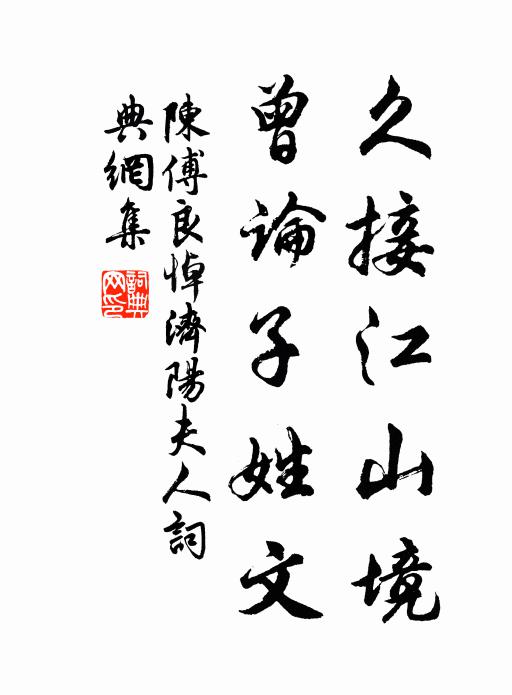 久接江山境
曾論子姓文
陳傅良悼濟陽夫人詞
典網集
詞典網印